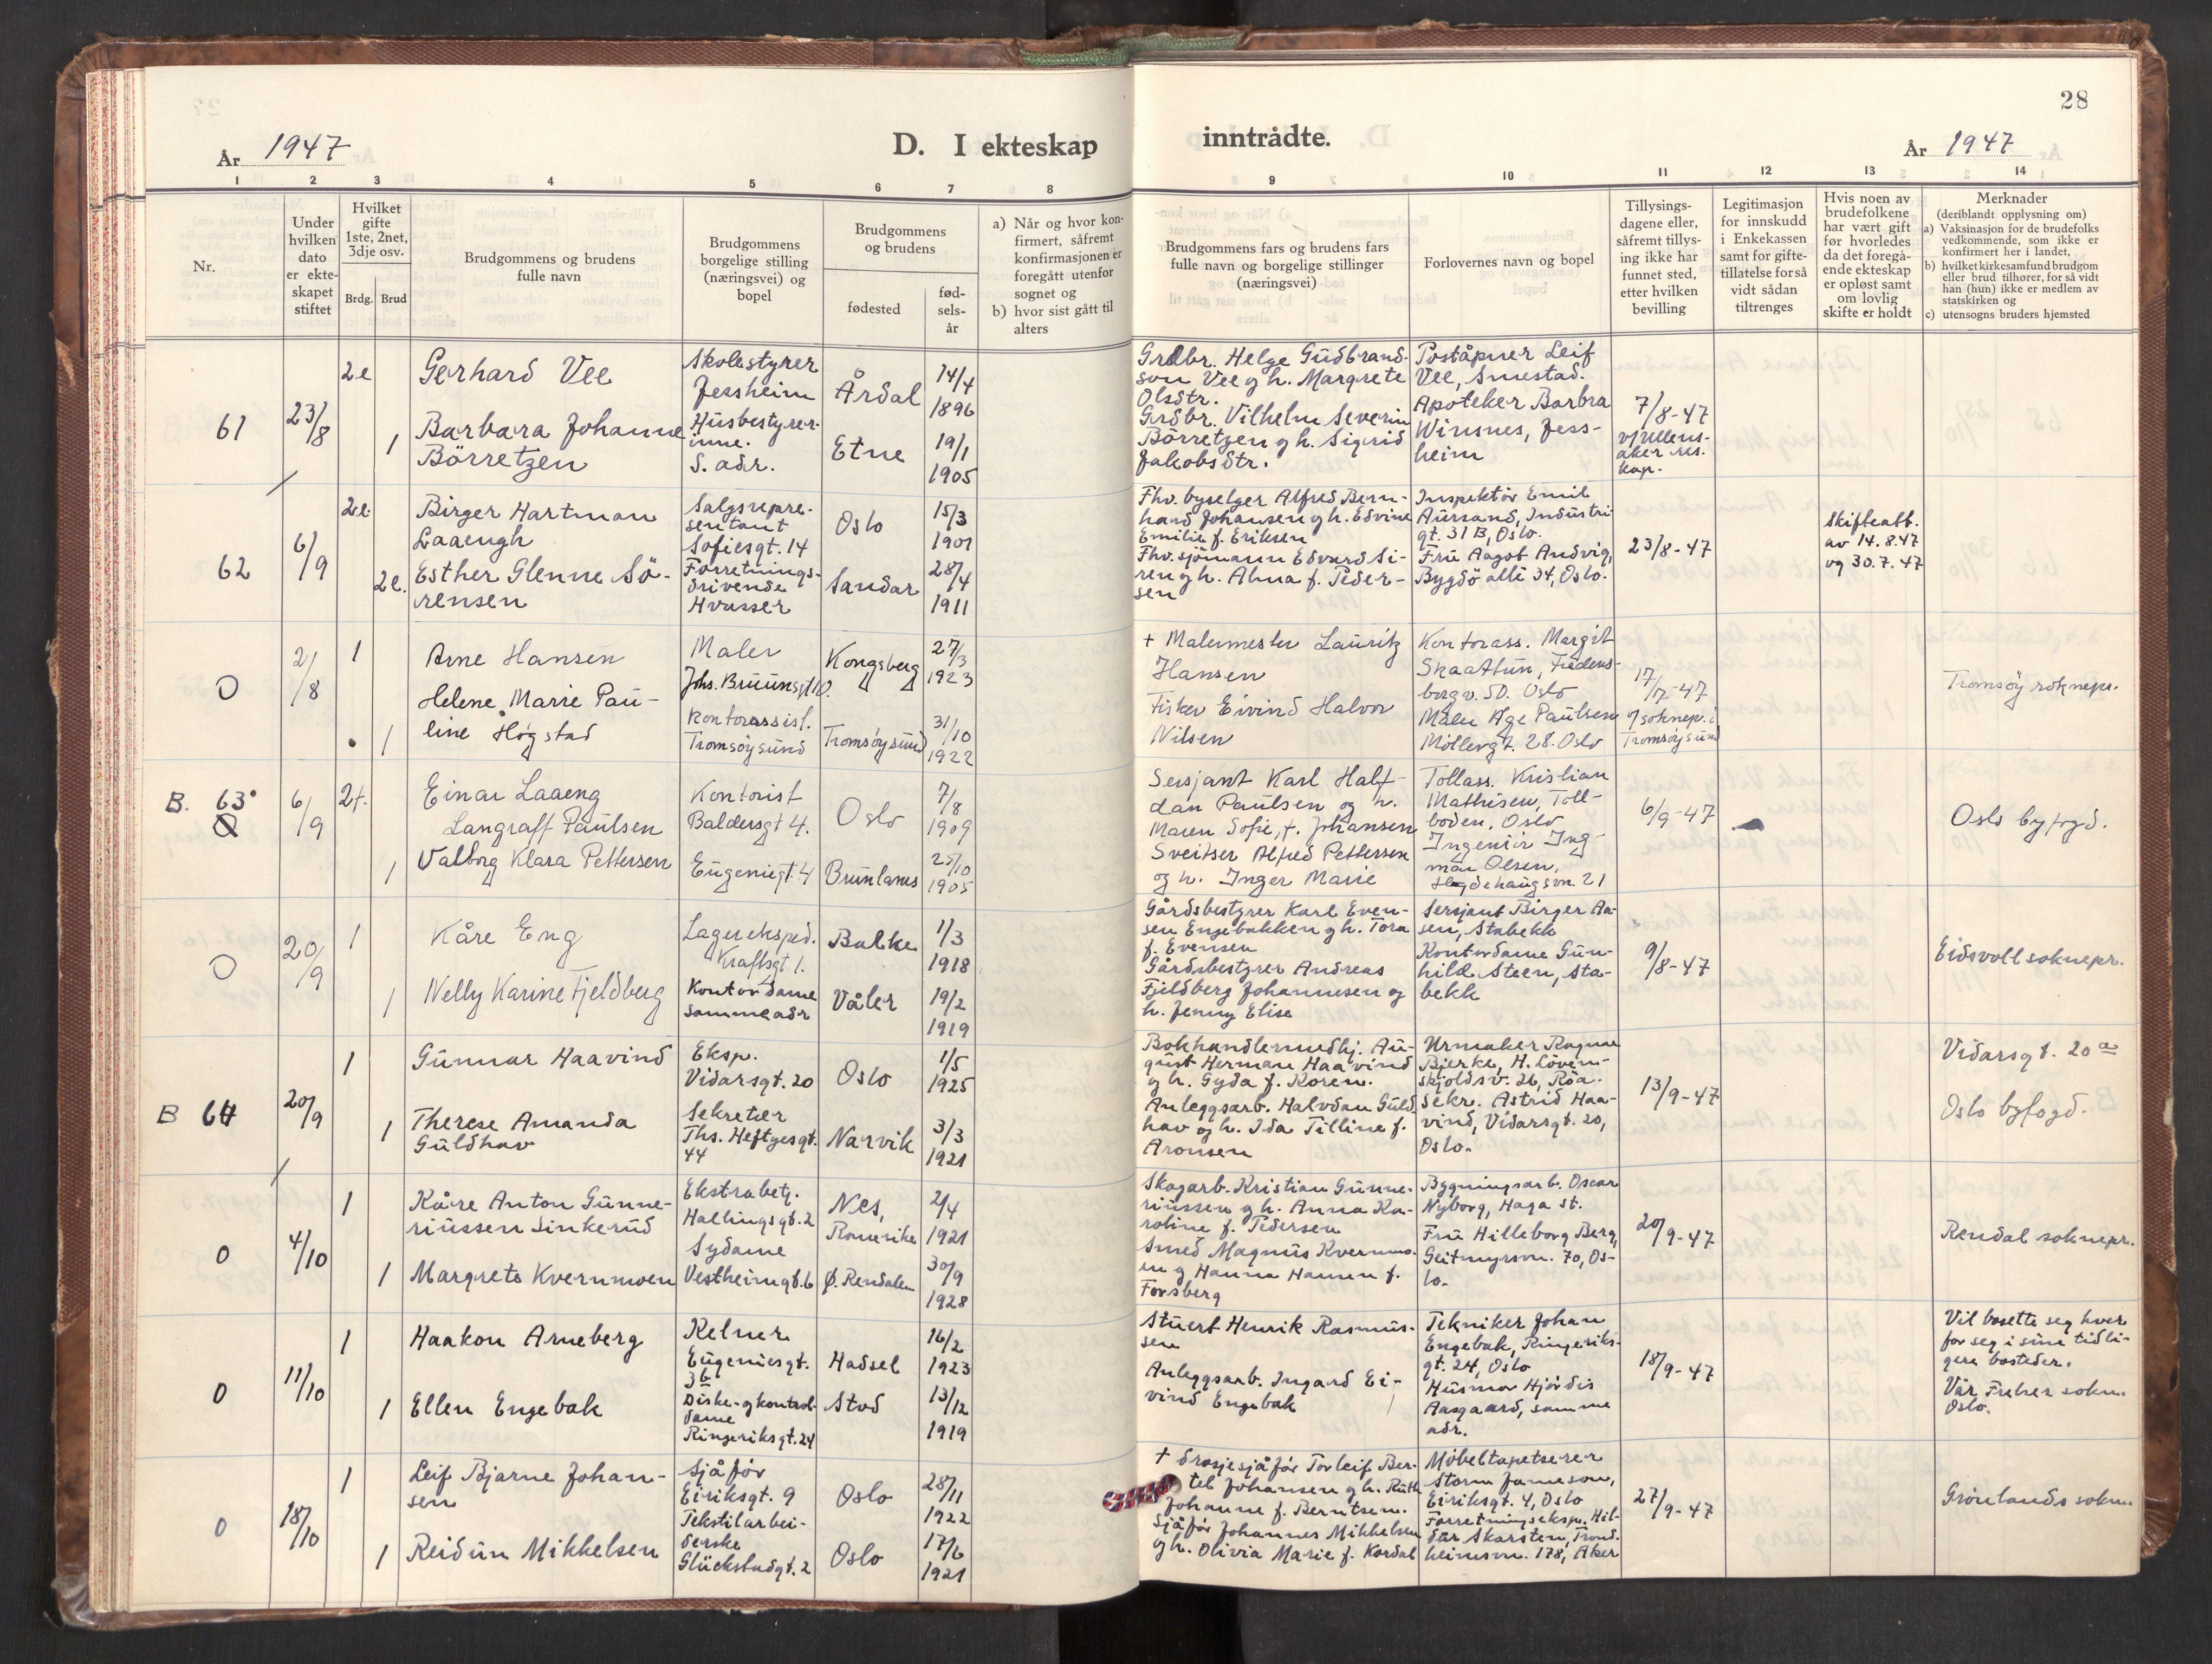 28
År 1947
D. I ekteskap inntrådte.
År 1947
1 2 3 4 5 6 7 8 9 10 11 12 13 14
Nr.
Under hvilken dato er ekteskapet stiftet
Hvilket gifte 1ste, 2net, 3dje osv.
Brdg. Brud
Brudgommens og brudens fulle navn
Brudgommens borgelige stilling (næringsvei) og bopel
Brudgommens og brudens
fødested
fød-
sels-
år
a) Når og hvor kon-
firmert, såfremt
konfirmasjonen er
foregått utenfor
sognet og
b) hvor sist gått til
alters
Brudgommens fars og brudens fars
fulle navn og borgelige stillinger
(næringsvei)
Forlovernes navn og bopel
Tillysings-
dagene eller,
såfremt tillys-
ing ikke har
funnet sted,
etter hvilken
bevilling
Legitimasjon
for innskudd
i Enkekassen
samt for gifte-
tillatelse for så
vidt sådan
tiltrenges
Hvis noen av
brudefolkene
har vært gift
før hvorledes
da det foregå-
ende ekteskap
er opløst samt
om lovlig
skifte er holdt
Merknader
(deriblandt opplysning om)
a) Vaksinasjon for de brudefolks
vedkommende, som ikke er
konfirmert her i landet,
b) hvilket kirkesamfund brudgom
eller brud tilhører, for så vidt
han (hun) ikke er medlem av
statskirken og
c) utensogns bruders hjemsted
61
23/8
2e
Gerhard Vee
Skolestyrer
Jessheim
Årdal
14/4
1896
1
Barbara Johanne
Börretzen
Husbestyrer-
inne.
S. adr.
Etne
19/1
1905
Grdbr. Helge Gudbrand-
son Vee g h. Margrete
Olsdtr.
Grdbr. Vilhelm Severin
Börretzen g h. Sigrid
Jakobsdtr.
Poståpner Leif
Vee, Smestad.
Apoteker Barbra
Winsnes, Jess-
heim
7/8-47
v/Ullens-
aker res.
kap.
62
6/9
2e
Birger Hartman
Laaengh
Salgsrepre-
sentant
Sofiesgt. 14
Oslo
15/3
1901
2e.
Esther Glenne Sö-
rensen
Forretnings-
drivende
Hvasser
Sandar
28/4
1911
Fhv. byselger Alfred Bern-
hard Johansen g h. Edvine
Emilie f. Eriksen
Fhv. sjömann Edvard Si-
ren g h. Alma f. Peder-
sen
Inspektör Emil
Aursand, Industri
gt. 31 B, Oslo.
Fru Aagot Andvig,
Bygdö allé 34, Oslo.
23/8-47
Skifteatt.
av 14.8.47
og 30.7.47
O
2/8
1
Arne Hansen
Maler
Johs. Bruunsgt 10.
Kongsberg
27/3
1923
1
Helene Marie Pau-
line Høgstad
Kontorassist.
Tromsøysund
Tromsøysund
31/10
1922
+ Malermester Lauritz
Hansen
Fisker Eivind Halvor
Nilsen
Kontorass. Margit
Skaattun, Fredens-
borgv. 50. Oslo
Maler Åge Paulsen
Möllergt. 28. Oslo
Tromsøysund
Tromsøy soknepr.
B. 63
6/9
2f.
Einar Laaeng
Langraff Paulsen
Kontorist
Baldersgt 4.
Oslo
7/8
1909
1
Valborg Klara Pettersen
Eugeniegt. 4
Brunlanes
25/10
1905
Sersjant Karl Half-
dan Paulsen og h.
Maren Sofie, f. Johansen
Sveitser Alfred Pettersen
og h. Inger Marie
Tollass. Kristian
Mathisen, Toll-
boden. Oslo
Ingeniör Ing-
mar Olsen,
Hegdehaugsvn. 21
6/9-47
Oslo byfogd.
O
20/9
1
Kåre Eng
Lagereksped.
Kraftsgt 1.
Balke
1/3
1918
1
Nelly Karine Fjeldberg
Kontordame
Samme adr
Våler
19/2
1919
Gårdsbestyrer Karl Even-
sen Engebakken g h. Tora
f. Evensen
Gårdsbestyrer Andreas
Fjeldberg Johannesen og
h. Jenny Elise
Sersjant Birger Aa-
sen, Stabekk
Kontordame Gun-
hild Steen, Sta-
bekk
9/8-47
Eidsvoll soknepr.
B 64
20/9
1
Gunnar Haavind
Eksp.
Vidarsgt. 20
Oslo
1/5
1925
1
Therese Amanda
Guldhav
Sekretær
Ths. Heftyesgt.
44
Narvik
3/3
1921
Bokhandlermedhj. Au-
gust Herman Haavind
g h. Gyda f. Koren.
Anleggsarb. Halvdan Guld
hav og h. Ida Tilline f.
Aronsen
Urmaker Ragnar
Bjerke, H. Löven-
skjoldsv. 26, Röa.
Sekr. Astrid Haa-
vind, Vidarsgt. 20,
Oslo.
13/9-47
Vidarsgt. 20 a
Oslo byfogd.
O
4/10
1
Kåre Anton Gunne-
riussen Linkerud
Ekstrabetj.
Hallingsgt. 2
Nes,
Romerike
2/4
1921
1
Margrete Kvernmoen
Sydame
Vestheimgt. 6
Ø. Rendalen
30/9
1928
Skogarb. Kristian Gunne-
riussen g h. Anna Ka-
roline f. Pedersen
Smed Magnus Kvernmo-
en g Hanna Hansen f.
Forsberg
Bygningsarb. Oscar
Nyborg, Haga st.
Fru Hilleborg Berg,
Geitmyrsvn. 70, Os-
lo.
20/9-47
Rendal soknepr.
O
11/10
1
Haakon Arneberg
Kelner
Eugeniesgt.
3b
Hadsel
16/2
1923
1
Ellen Engebak
Diske- g kontrol-
dame
Ringeriksgt. 24
Stod
13/12
1919
Stuert Henrik Rasmus-
sen
Anleggsarb. Ingard Ei-
vind Engebak
Tekniker Johan
Engebak, Ringeriks-
gt. 24, Oslo
Husmor Hjördis
Aasgaard, samme
adr.
18/9-47
Vil bosette seg hver
for seg i sine tidli-
gere bosteder.
Vår Frelser sokn.
Oslo.
O
18/10
1
Leif Bjarne Johan-
sen
Sjåför
Eiriksgt. 9
Oslo
28/11
1922
1
Reidun Mikkelsen
Tekstilarbei-
derske
Glückstadgt. 2
Oslo
17/6
1921
+ Drosjesjåför Torleif Ber-
tel Johansen g h. Ruth
Johanne f. Berntsen.
Sjåför Johannes Mikkelsen
g h. Olivia Marie f. Kordal
Möbeltapetserer
Storm Jameson,
Eiriksgt. 4, Oslo
Forretningseksp. Hil-
dur Skarsten, Trond-
heimsvn. 178, Aker
27/9-47
Grönlands sokn.